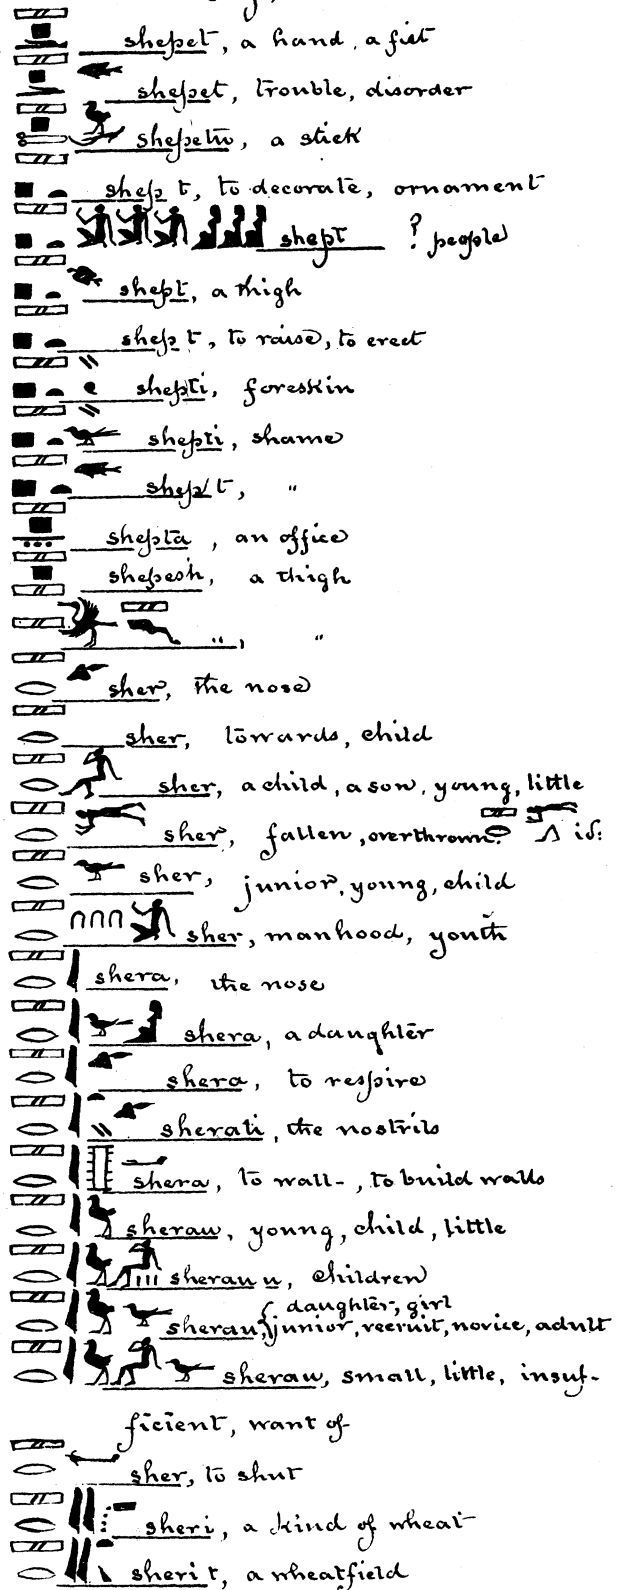 shepet, a hand, a fist
shepet, trouble, disorder
shepetu, a stick
shep t, to decorate, ornament
shept ? people
shept, a thigh
shep t, to raise, to erect
shepti, foreskin
shepti, shame
shep t, "
shepta, an office
shepesh, a thigh
",  "
sher, the nose
sher, towards, child
sher, a child, a son, young, little
sher, fallen, overthrown. id:
sher, junior, young, child
sher, manhood, youth
shera, the nose
shera, a daughter
shera, to respire
sherati, the nostrils
shera, to wall-, to build walls
sherau, young, child, little
sherau u, children
daughter, girl
sherau, { junior, recruit, novice, adult
sherau, small, little, insuf-
ficient, want of-
sher, to shut
sheri, a kind of wheat
sheri t, a wheatfield